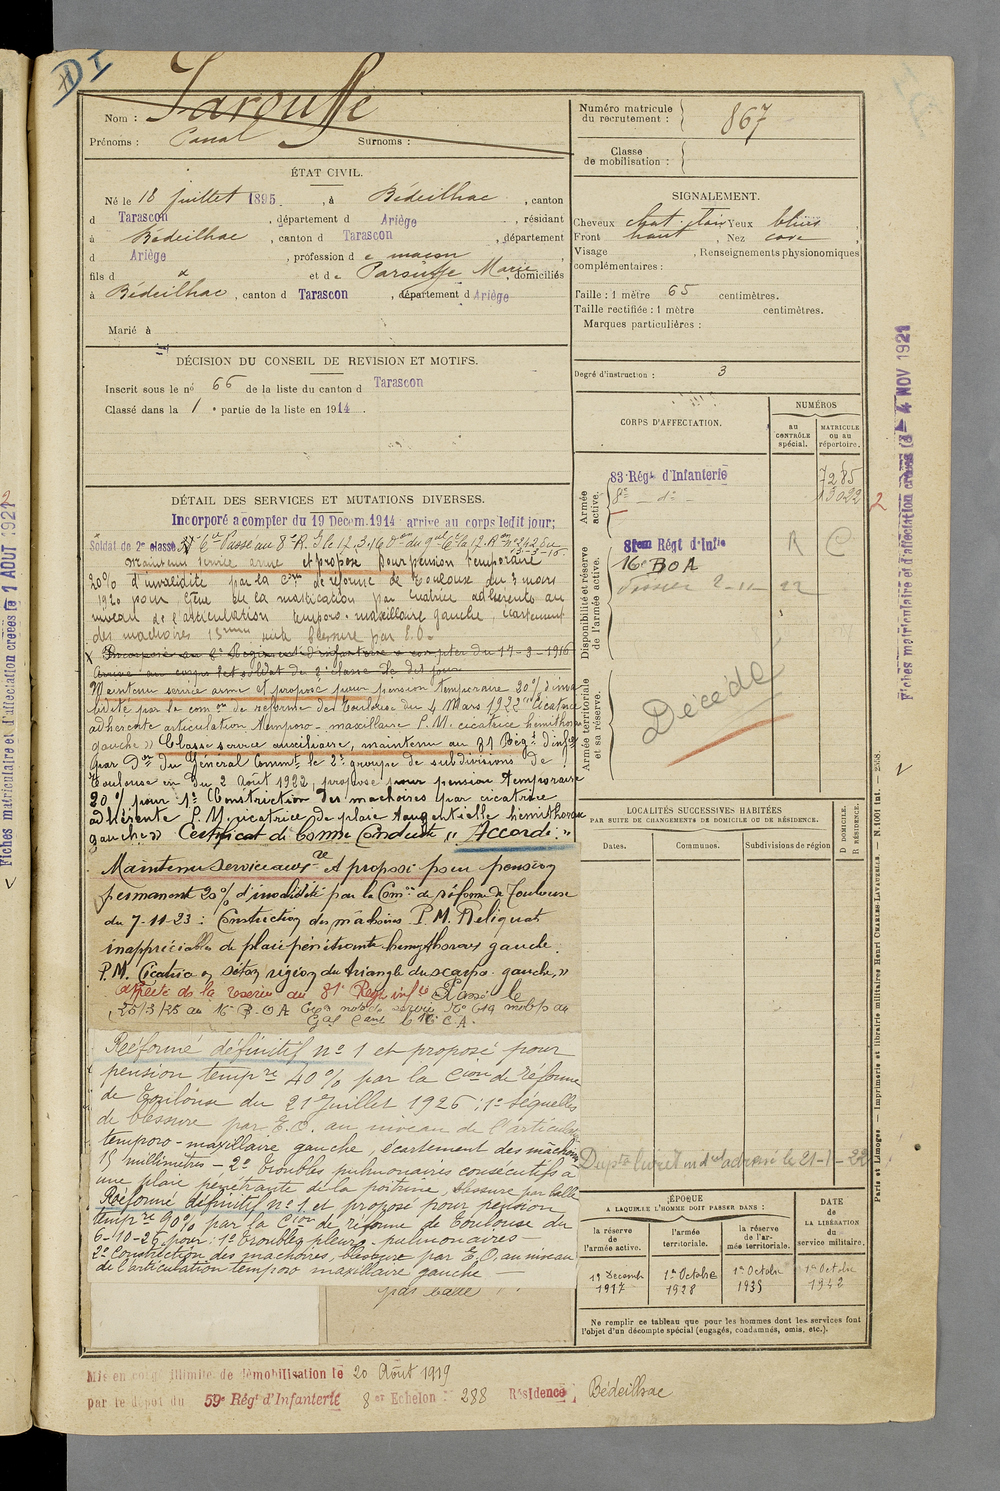 DI
Nom : Parousse
Prénoms : Canal Surnoms :
ÉTAT CIVIL.
Né le 18 juillet 1895, à Bédeilhac, canton
d Tarascon, département d Ariège, résidant
à Bédeilhac, canton d Tarascon, département
d Ariège, profession de maçon,
fils d x et de Parousse Marie, domiciliés
à Bédeilhac, canton d Tarascon, département d Ariège
Marié à
DÉCISION DU CONSEIL DE REVISION ET MOTIFS.
Inscrit sous le no 66 de la liste du canton d Tarascon
Classé dans la 1e partie de la liste en 1914.
DÉTAIL DES SERVICES ET MUTATIONS DIVERSES.
Incorporé a compter du 19 Decem. 1914 arrive au corps ledit jour;
Soldat de 2e classe Passé au 8e R.I. le 12.3.16
Maintenu service armé et proposé pour pension temporaire
20% d'invalidité par la Con de réforme de Toulouse du 3 mars
1920 pour gêne de la mastication par cicatrice adhérente au
niveau de l'articulation temporo-maxillaire gauche, écartement
des machoires 15mm suite blessure par E.O.
X Incorporé au 8e Régiment d'infanterie à compter du 17-3-1916
Arrivé au corps et soldat de 2e classe le dit jour
Maintenu service armé et proposé pour pension temporaire 20% d'inva
lidité par la comon de réforme de Toulouse du 4 Mars 1922 "Cicatrice
adhérente articulation temporo-maxillaire P.M. cicatrice hémithorax
gauche" Classé service auxiliaire, maintenu au 81 Regt d'infie
par Don du Général Commt le 2e groupe de subdivisions de
Toulouse en du 2 Août 1922, proposé pour pension temporaire
20% pour 1° Constriction des machoires par cicatrice
adhérente P.M. cicatrice de plaie tangentielle hémithorax
gauche" Certificat de bonne Conduite "Accordé."
Maintenu service auxre et proposé pour pension
permanent 20% d'invalidité par la Comon de réforme de Toulouse
du 7-11-23 : Constriction des mâchoires P.M. Reliquat
inappréciables de plaie pénétrante hemythorax gauche.
P.M. Cicatrice en séton région du triangle du scarpa gauche,"
Affecté ds la reserve au 81e Regt infie Passé le
25/3/25 au 16e B.O.A
Gal Comt le 16e C.A.
Réformé définitif no 1 et proposé pour
pension tempre 40% par la Cion de réforme
de Toulouse du 21 Juillet 1926 : 1° Séquelles
de blessure par E.O. au niveau de l'articulation
temporo-maxillaire gauche, écartement des mâchoires
15 millimètres - 2° Troubles pulmonaires consécutifs à
une plaie pénétrante de la poitrine, blessure par balle
Réformé définitif no 1 et proposé pour pension
tempre 90% par la Cion de réforme de Toulouse du
6-10-26 pour : 1° Troubles pleuro-pulmonaires -
2° Constriction des machoires, blessure par E.O. au niveau
de l'articulation temporo maxillaire gauche -
par balle
Mis en congé illimité de démobilisation le 20 Août 1919
par le dépot du 59e Régt d'Infanterie 8er Echelon N° 288 Résidence Bédeilhac
Numéro matricule
du recrutement : 867
Classe
de mobilisation :
SIGNALEMENT.
Cheveux chat. clair Yeux bleus
Front haut, Nez cave,
Visage , Renseignements physionomiques
complémentaires :
Taille : 1 mètre 65 centimètres.
Taille rectifiée : 1 mètre centimètres.
Marques particulières :
Degré d'instruction : 3
CORPS D'AFFECTATION.
NUMÉROS
AU CONTRÔLE SPÉCIAL.
MATRICULE OU AU RÉPERTOIRE.
Armée active.
83e Régt d'Infanterie 7285
8e - do - 13022
2
Disponibilité et réserve de l'armée active.
81em Régt d'Infie R C
16e BOA
Armée territoriale et sa réserve.
Décédé
LOCALITÉS SUCCESSIVES HABITÉES
PAR SUITE DE CHANGEMENTS DE DOMICILE OU DE RÉSIDENCE.
D. DOMICILE.
R. RÉSIDENCE.
Dates. Communes. Subdivisions de région
Dupta livret indel adressé le 21-1-22
ÉPOQUE
A LAQUELLE L'HOMME DOIT PASSER DANS :
DATE
de
LA LIBÉRATION
du
service militaire.
la réserve de l'armée active.
l'armée territoriale.
la réserve de l'armée territoriale.
19 Decembre 1917
1er Octobre 1928
1er Octobre 1935
1er Octobre 1942
Ne remplir ce tableau que pour les hommes dont les services font
l'objet d'un décompte spécial (engagés, condamnés, omis, etc.).
Paris et Limoges. — Imprimerie et librairie militaires Henri CHARLES-LAVAUZELLE. — N. 1001 int. — 2-58.
Fiches matriculaire et d'affectation créées le 4 NOV 1921
Fiches matriculaire et d'affectation créées le 1 AOUT 1921
2